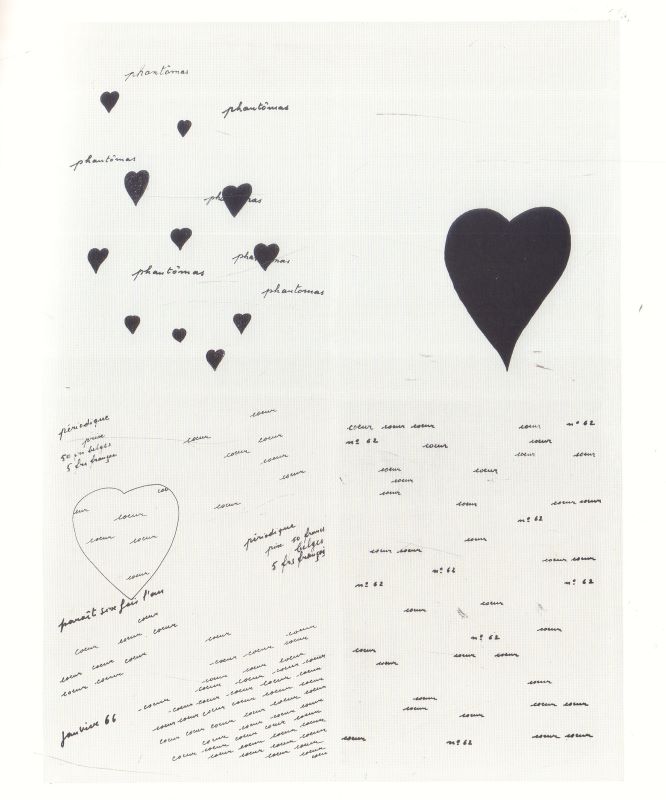 phantômas
phantômas
phantômas
phantômas
phantômas
phantômas
phantomas
périodique
prix
50 frs belges
5 frs français
coeur
coeur coeur
coeur coeur
coeur
coeur
coeur
coeur
coeur coeur
coeur
périodique
prix 50 francs
belges
5 frs français
paraît six fois l'an
coeur
coeur coeur coeur
coeur coeur coeur
coeur coeur
janvier 66
coeur coeur
coeur
coeur coeur coeur
coeur coeur
coeur coeur coeur
coeur coeur coeur coeur
coeur coeur coeur coeur coeur
coeur coeur coeur coeur coeur
coeur coeur coeur coeur coeur
coeur coeur coeur coeur
coeur coeur coeur coeur
coeur coeur coeur
coeur coeur coeur coeur n° 62
n° 62 coeur coeur
coeur coeur
coeur coeur
coeur
coeur
coeur coeur coeur
n° 62
coeur
coeur coeur
coeur coeur
n° 62
n° 62 n° 62
coeur coeur
coeur
n° 62
coeur
coeur coeur
coeur
coeur
coeur
coeur coeur coeur
coeur
coeur n° 62 coeur coeur